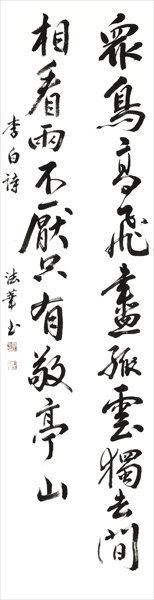 眾鳥高飛盡孤雲獨去閒
相看兩不厭只有敬亭山
李白詩
法華書